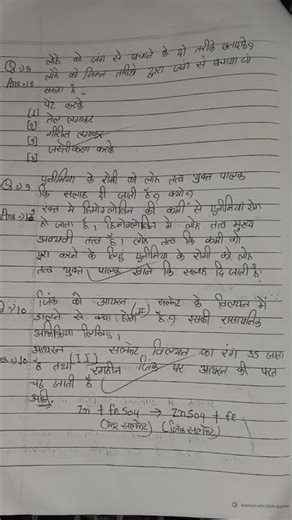 Q.8 लोहे को जंग से बचाने के दो तरीके बताइये?
Ans:8 लोहे को निम्न तरीके द्वारा जंग से बचाया जा
सकता है -
[1] पेंट करके
[2] तेल लगाकर
[3] ग्रीस लगाकर
[4] जस्तीकरण करके
Q.9 एनीमिया के रोगी को लोह तत्व युक्त पालक
कि सलाह दी जाती है? क्यो?
रक्त में हिमोग्लोबिन की कमी से एनीमिया रोग
हो जाता है। हिमोग्लोबिन में लोह तत्व मुख्य
अवयवी तत्व है। लोह तत्व कि कमी को
पुरा करने के लिए एनीमिया के रोगी को लोह
तत्व युक्त पालक खाने कि सलाह दि जाती है।
10 जिंक को आयरन (II) सल्फेट के विलयन में
डालने से क्या होता है? इसकी रासायनिक
अभिक्रिया लिखिए।
10 आयरन सल्फेट विलयन का रंग उड़ जाता
है तथा (II) रंगहीन जिंक पर आयरन की परत
चढ़ जाती है।
Zn + FeSO4 → ZnSO4 + fe
(जिंक सल्फेट)
Scanned with